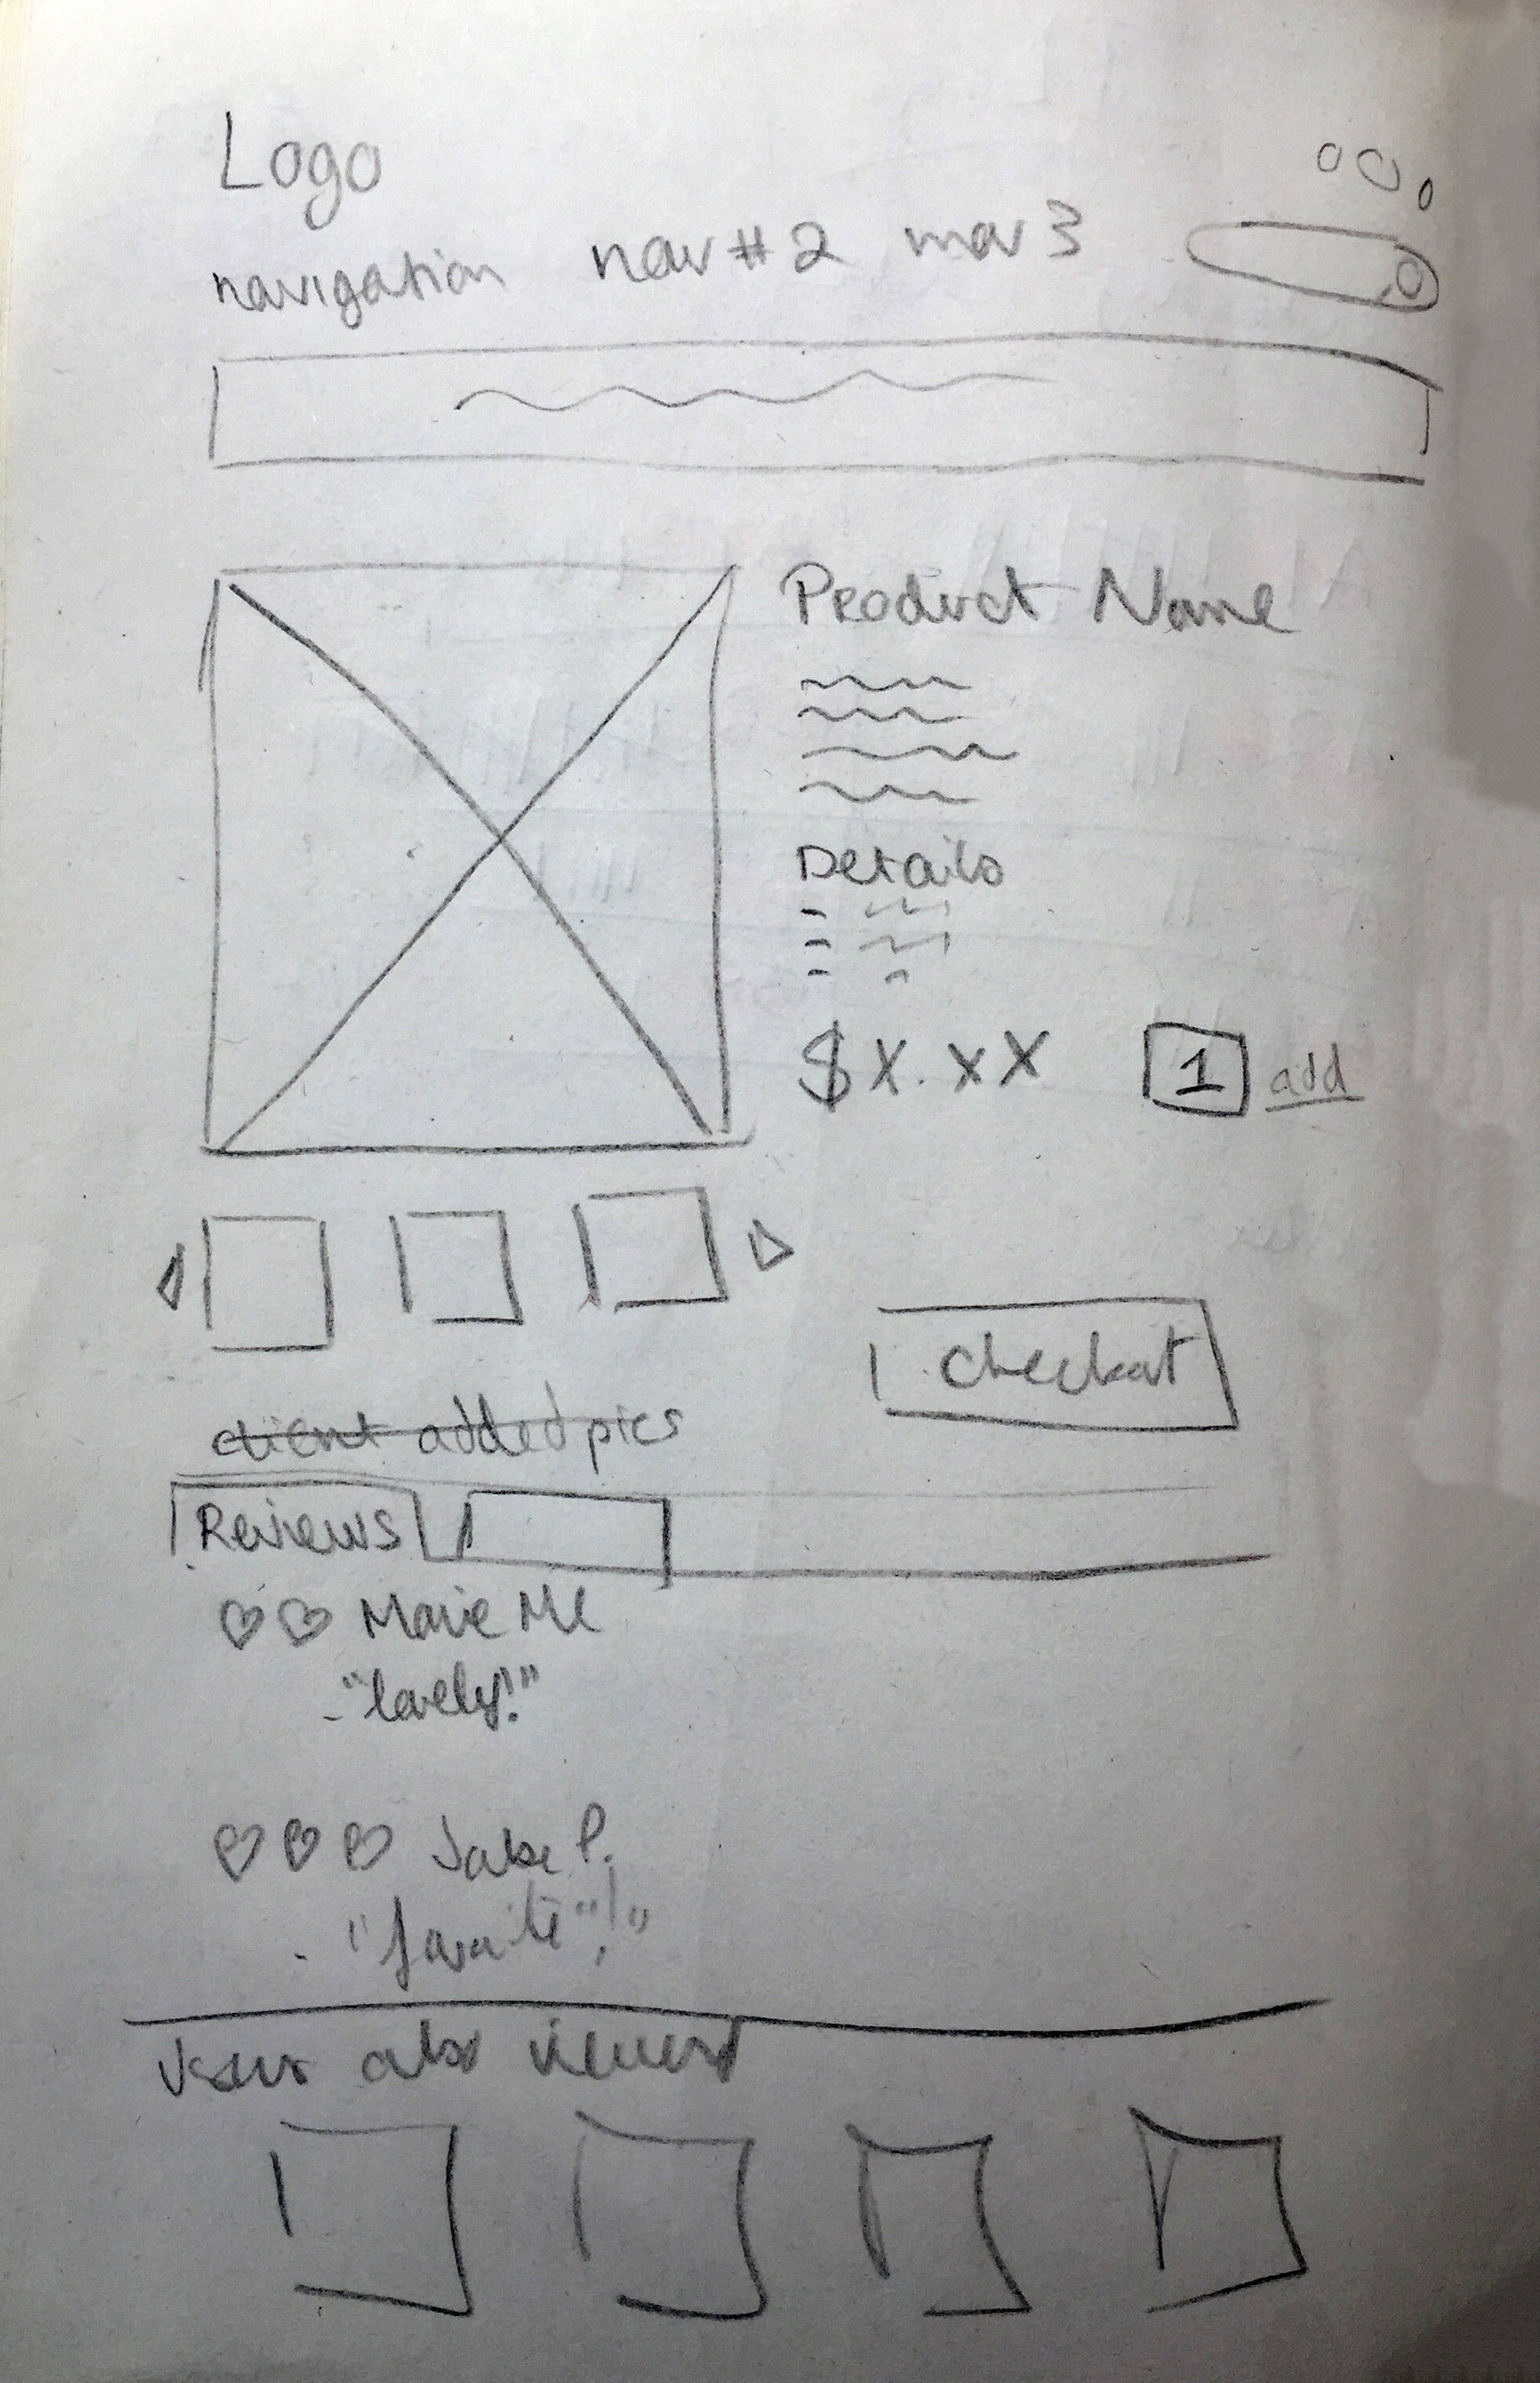 Logo
navigation nav #2 nav 3
Product Name
Details
$X.XX 1 add
checkout
client added pics
Reviews
Marie M
"lovely!"
Jake P.
"favorite"!"
users also viewed